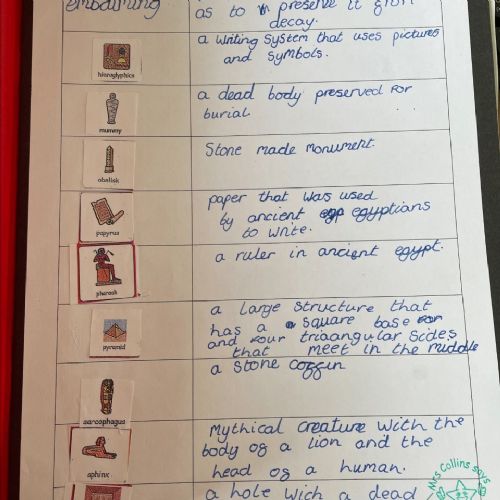 embalming
as to preserve it from
decay.
hieroglyphics
a writing system that uses pictures
and symbols.
mummy
a dead body preserved for
burial
obelisk
Stone made monument.
papyrus
paper that was used
by ancient egyptians
to write.
pharaoh
a ruler in ancient egypt.
pyramid
a large structure that
has a square base
and four triaangular sides
that meet in the middle
sarcophagus
a stone coffin
sphinx
Mythical creature with the
body of a lion and the
head of a human.
a hole with a dead
Mrs Collins says